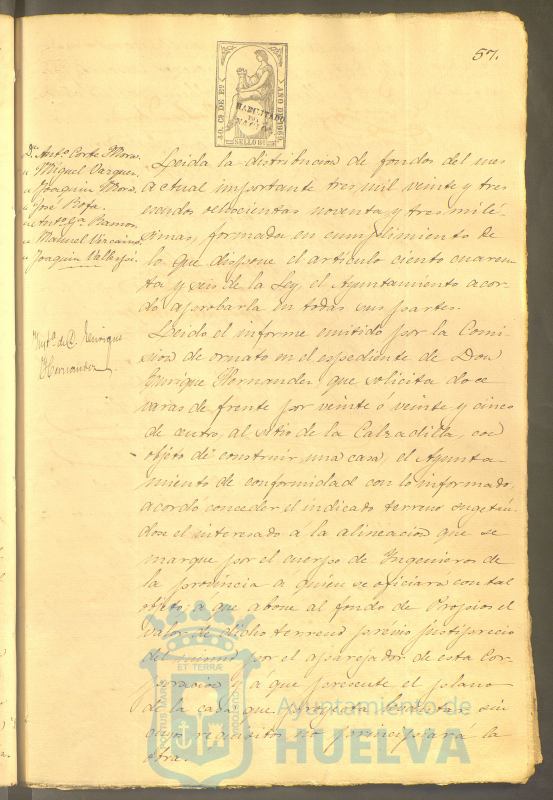 57.
50. Cs. DE Eo.
AÑO DE 1869
HABILITADO
POR LA
NACION
SELLO 9º
Dn. Antº Corte Mora.
" Miguel Vazquez.
" Joaquin Mora.
" José Rofa.
" Antº Gª Ramos.
" Manuel Vizcaino
" Joaquin Vallejo.
Leida la distribucion de fondos del mes
actual importante tres mil veinte y tres
escudos ochocientas noventa y tres milé-
simas, formada en cumplimiento de
lo que dispone el articulo ciento cuaren-
ta y seis de la Ley, el Ayuntamiento acor-
dó aprobarla en todas sus partes.
Inste. de D. Enrique
Hernandez.
Leido el informe emitido por la Comi-
sion de ornato en el espediente de Don
Enrique Hernandez que solicita doce
varas de frente por veinte ó veinte y cinco
de centro, al sitio de la Calzadilla, con
objeto de construir una casa, el Ayunta-
miento de conformidad con lo informado,
acordó conceder el indicado terreno sugetan-
dose el interesado a la alineacion que se
marque por el cuerpo de Ingenieros de
la provincia á quien se oficiara con tal
objeto; a que abone al fondo de Propios el
valor de dicho terreno prévio justiprecio
del mismo por el aparejador de esta Cor-
poracion y á que presente el plano
de la casa que proyecta levantar, sin
cuyo requisito no principiara la
obra.
PORTUS MARIS
ET TERRÆ
CUSTODIA
Ayuntamiento de
HUELVA